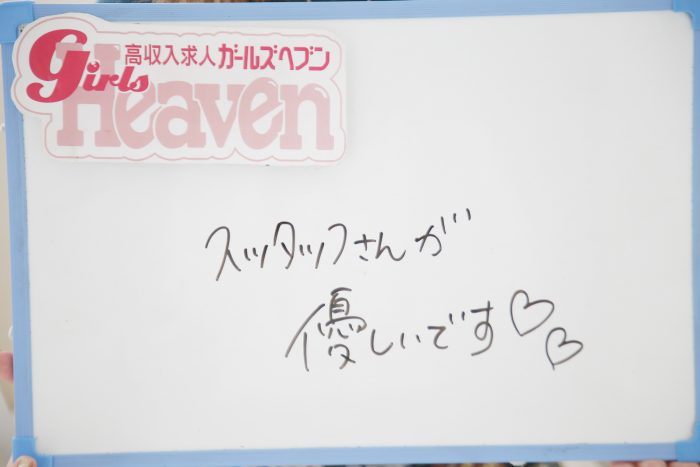 高収入求人ガールズヘブン
Girls
Heaven
スッタッフさんが
優しいです♡♡